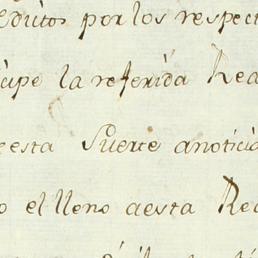 por los respect
cipe la referida Rea
esta Suerte anoticia
o el lleno a esta Rea